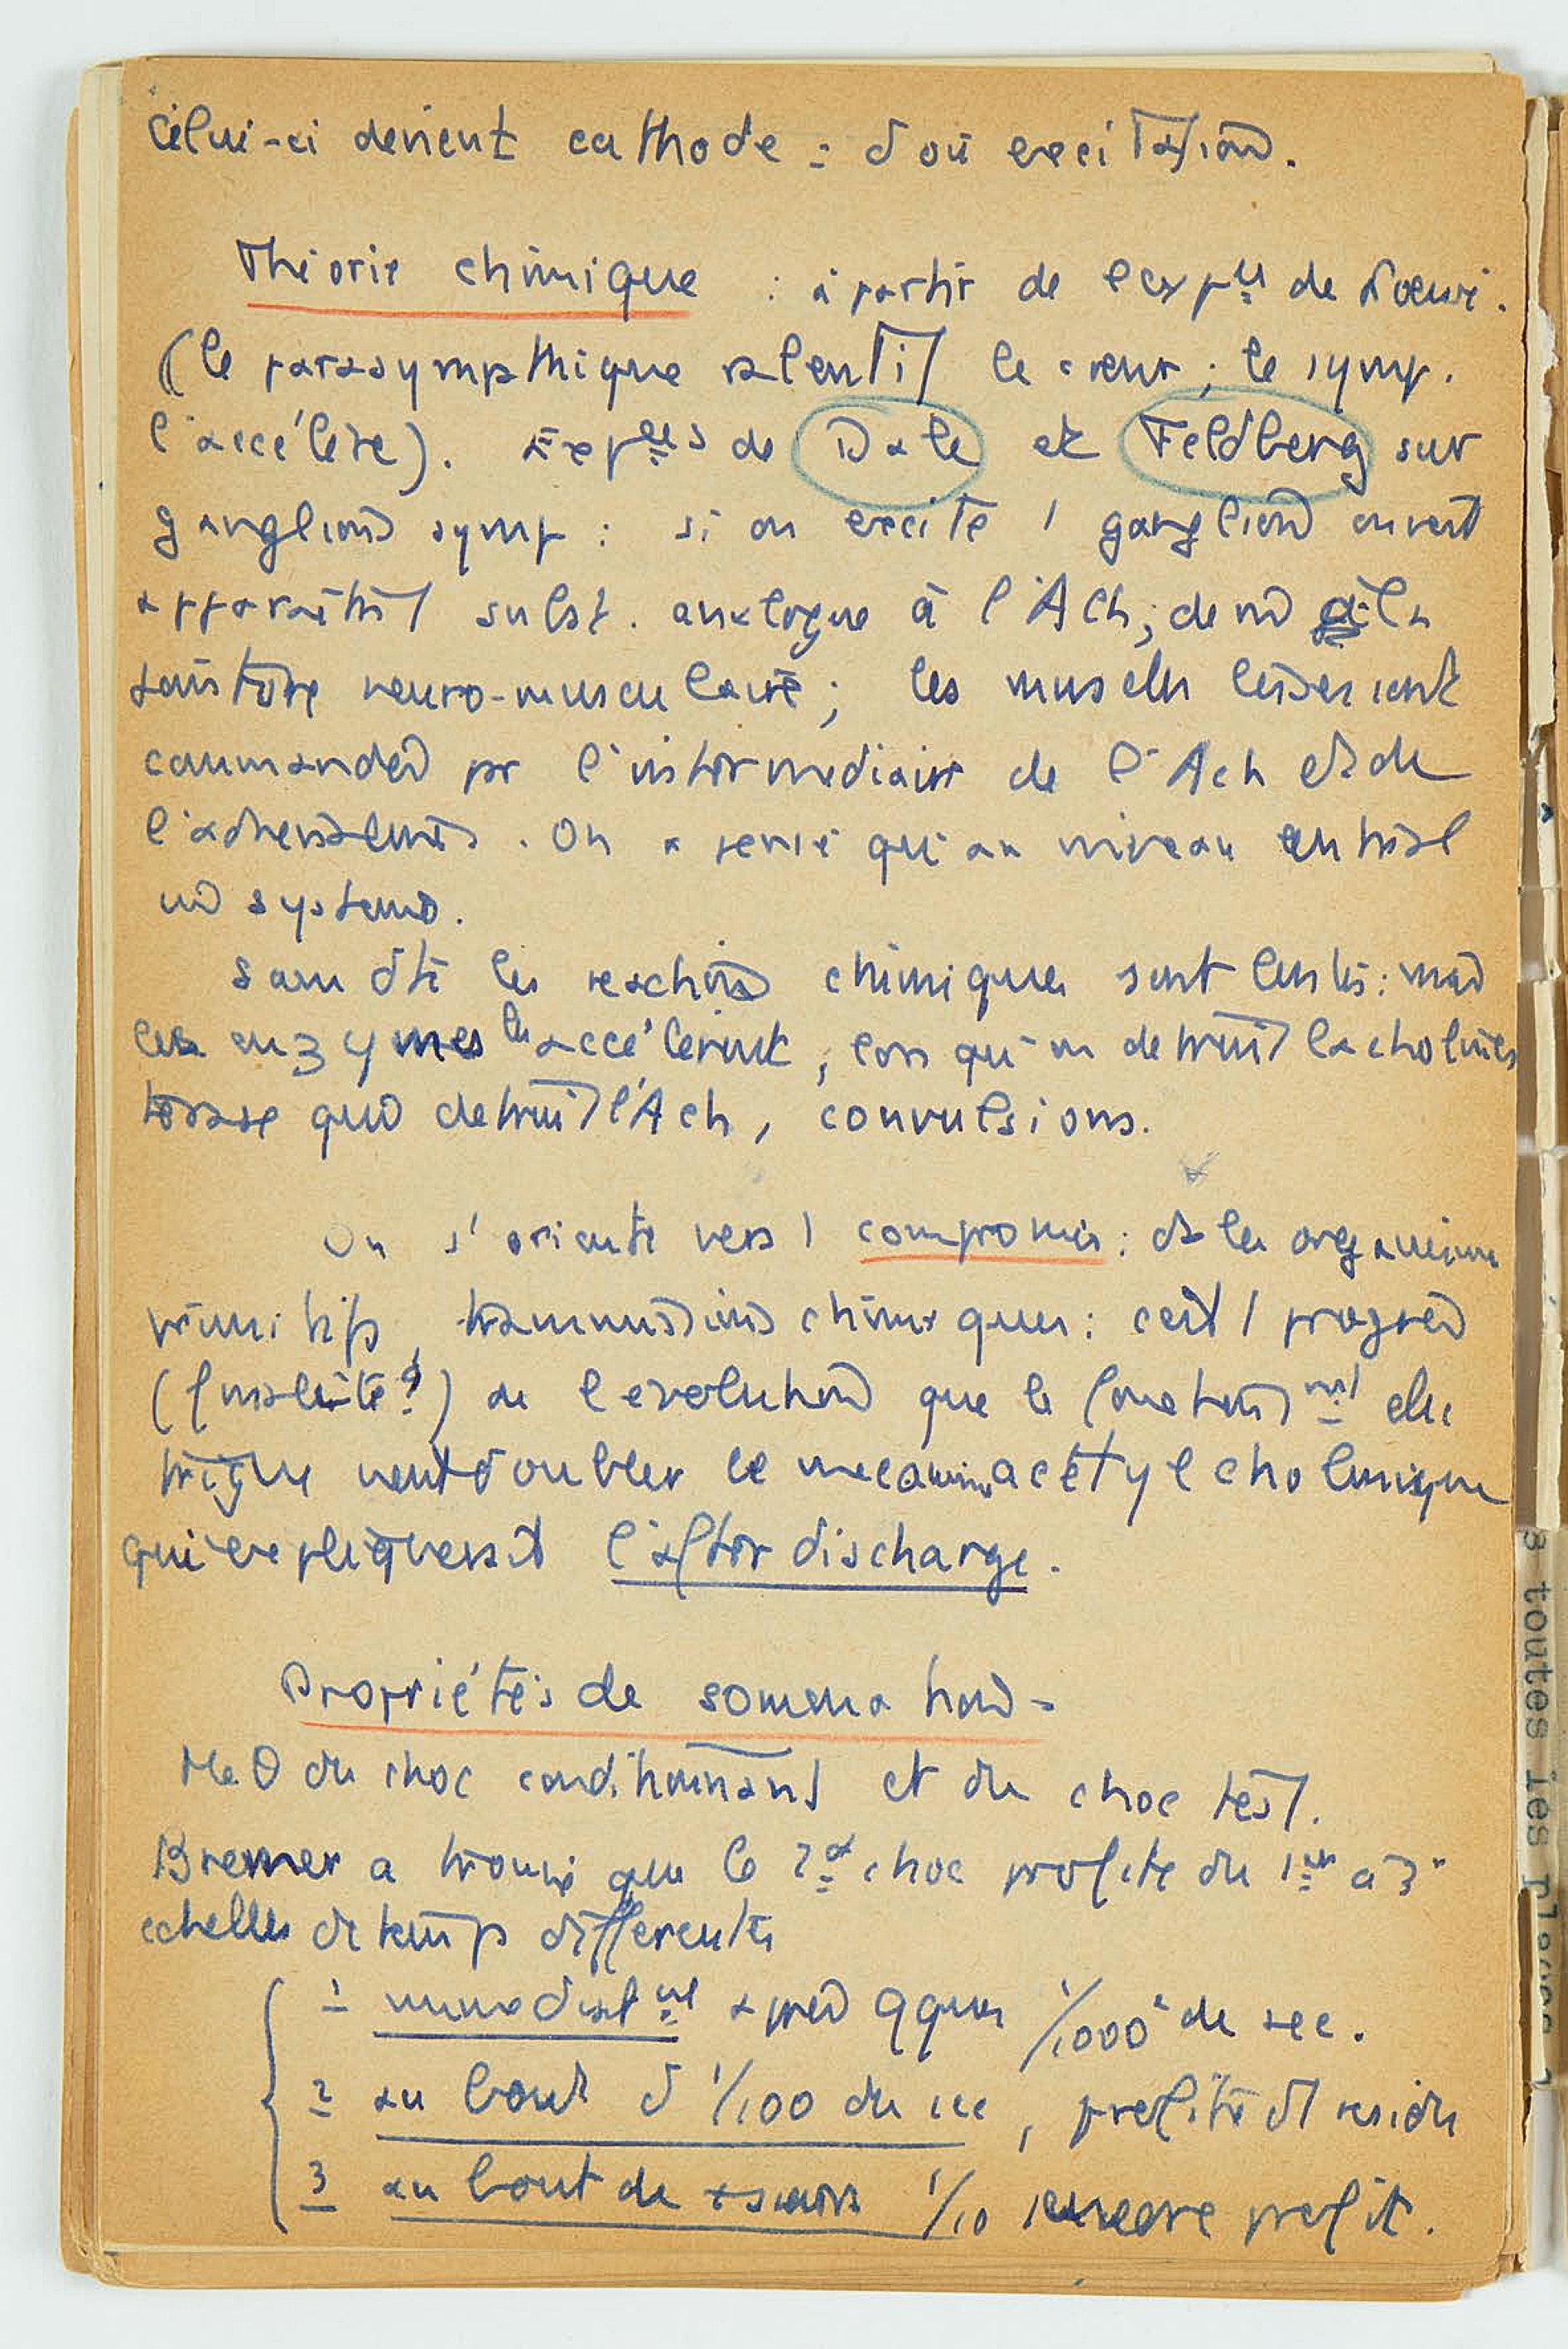 celui-ci devient cathode : d'où excitation.
Théorie chimique : à partir de l'exp^ce de Loewi.
(le parasympathique ralentit le cœur ; le symp.
l'accélère). Exp^ces de Dale et Feldberg sur
ganglions symp : si on excite 1 ganglion on voit
apparaître 1 subst. analogue à l'Ach ; de m à la
jointure neuro-musculaire ; les muscles lisses sont
commandés pr l'intermédiaire de l' Ach et de
l'adrénaline. On a pensé qu'au niveau central
m système.
Sans dte les réactions chimiques sont lentes : mais
les enzymes les accélèrent ; lorsqu'on détruit la cholines
térase qui détruit l'Ach, convulsions.
On s'oriente vers 1 compromis : ds les organismes
primitifs, transmissions chimiques : c'est 1 progrès
(finalité ?) de l'évolution que le fonction^nt élec
trique vient doubler le mécanisme acétylcholinique
qui expliquerait l'after discharge.
Propriétés de sommation -
Me θ du choc conditionnant et du choc test.
Bremer a trouvé que le 2^d choc profite du 1^er à 3
échelles de temps différentes
1 immédiat^nt après qques 1/1000^e de sec.
2 au bout d'1/100 de sec, profite d'1 résidu
3 au bout de 1/10 encore profit.
3 toutes les places